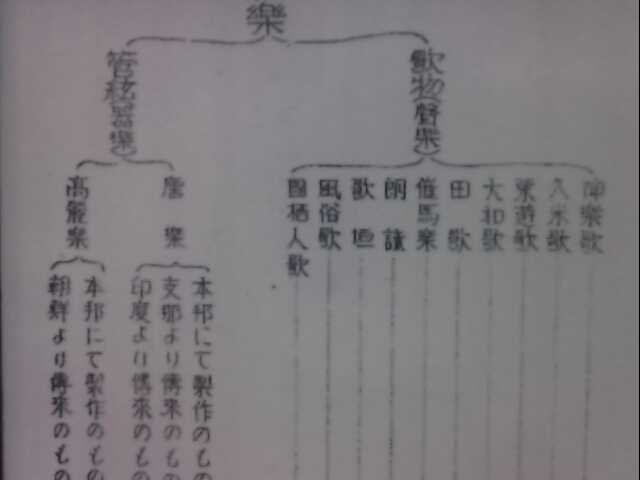 樂
歌物(聲樂)
神樂歌
久米歌
東遊歌
大和歌
田歌
催馬樂
朗詠
歌垣
風俗歌
國栖人歌
管絃(器樂)
唐樂
本邦にて製作のもの
支那より傳來のもの
印度より傳來のもの
高麗樂
本邦にて製作のもの
朝鮮より傳來のもの